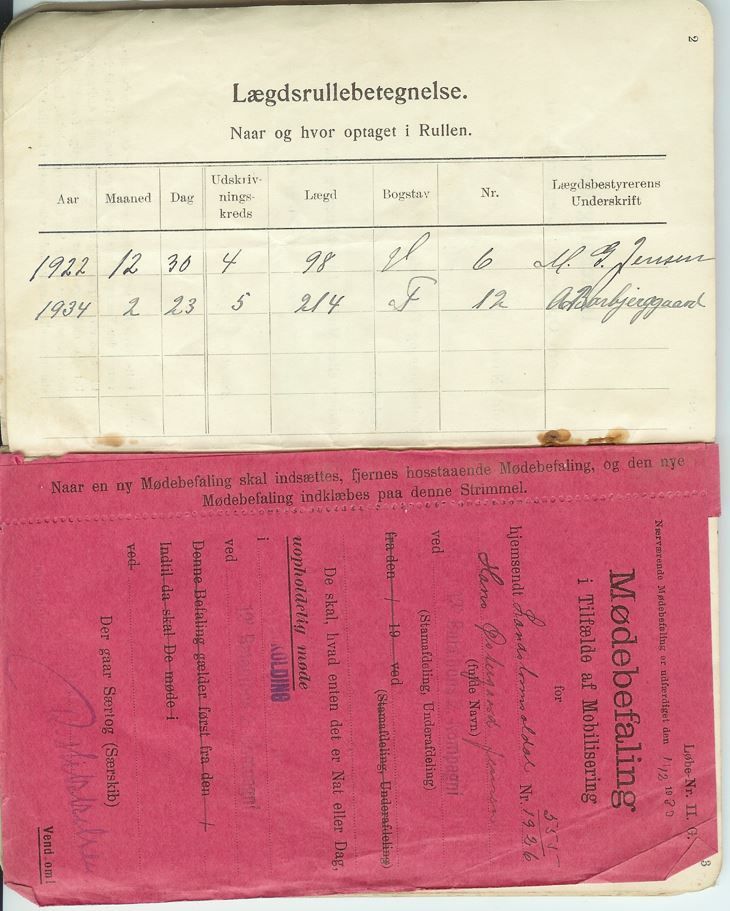 2
Lægdsrullebetegnelse.
Naar og hvor optaget i Rullen.
Aar Maaned Dag Udskriv-nings-kreds Lægd Bogstav Nr. Lægdsbestyrerens Underskrift
1922 12 30 4 98 6 M. G. Jensen
1934 2 23 5 214 F 12 Barbjerggaard
Naar en ny Mødebefaling skal indsættes, fjernes hosstaaende Mødebefaling, og den nye
Mødebefaling indklæbes paa denne Strimmel.
3
Løbe-Nr. II. G.
Nærværende Mødebefaling er udfærdiget den
Mødebefaling
i Tilfælde af Mobilisering
for
hjemsendt Landstormsoldat Nr. 555 1926
Hans Jensen
(fulde Navn)
ved Bataillons Kompagni
(Stamafdeling, Underafdeling)
fra den / 19 ved
(Stamafdeling, Underafdeling)
De skal, hvad enten det er Nat eller Dag,
uopholdelig møde
i KOLDING
ved
Denne Befaling gælder først fra den /
Indtil da skal De møde i
ved
Der gaar Særtog (Særskib)
Vend om!